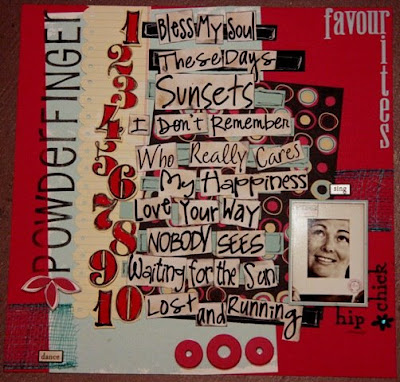 POWDERFINGER
favour
ites
1 Bless My Soul
2 These Days
3 Sunsets
4 I Don't Remember
5 Who Really Cares
6 My Happiness
7 Love Your Way
8 NOBODY SEES
9 Waiting for the Sun
10 Lost and Running
sing
hip chick
dance